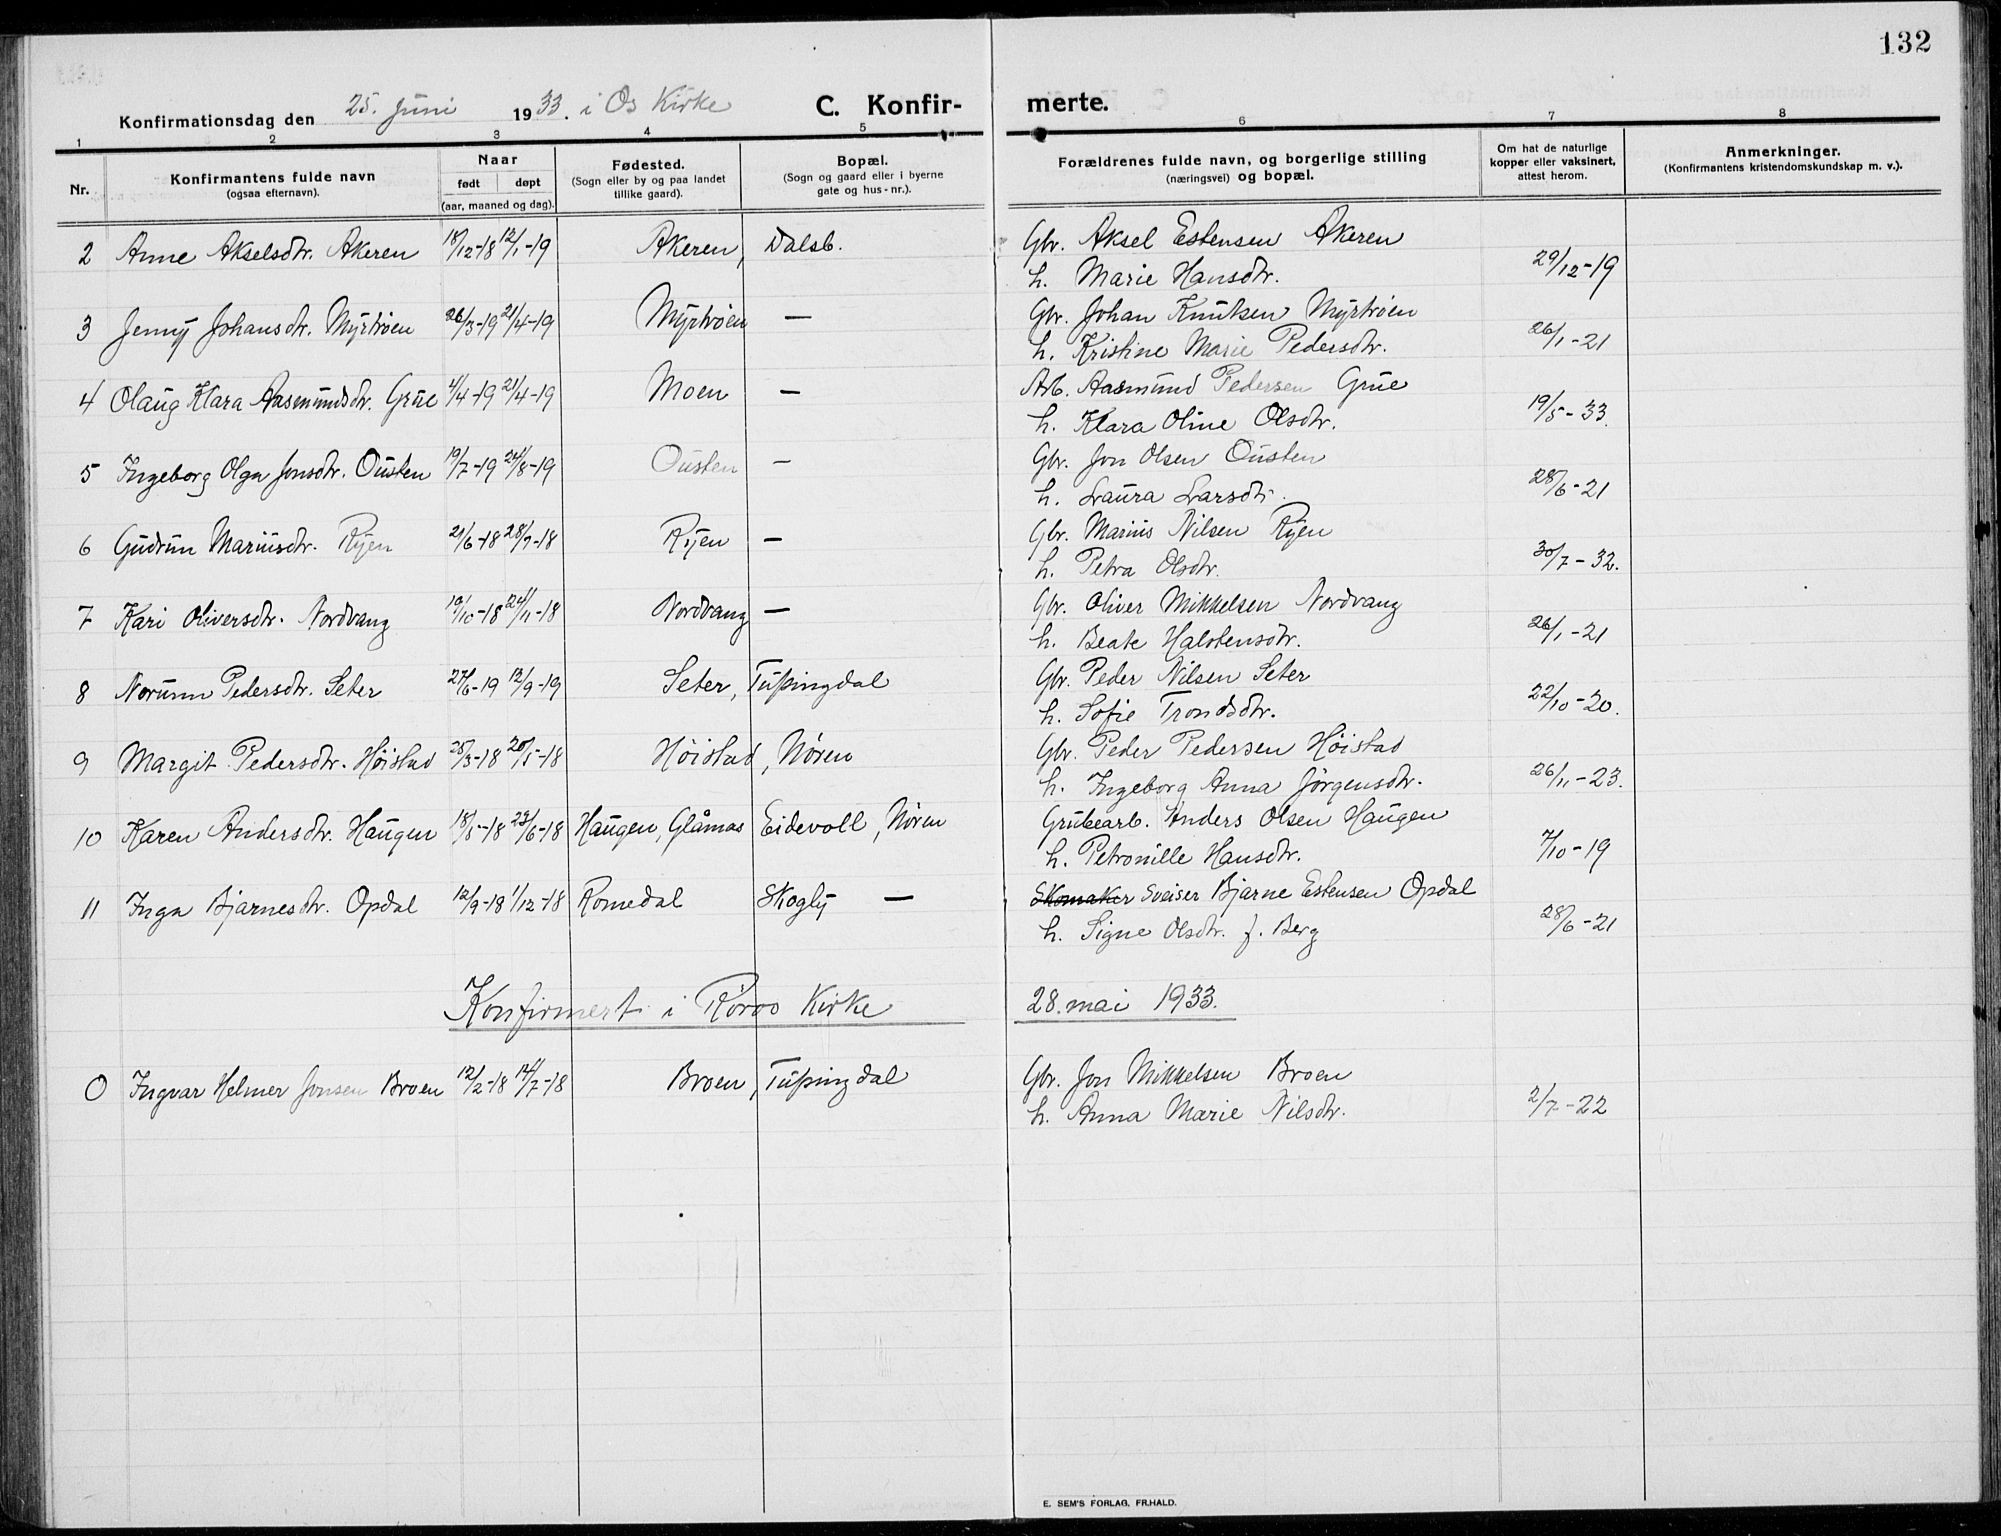 132
Konfirmationsdag den 25. Juni 1933. i Os Kirke C. Konfirmerte.
1 2 3 4 5 6 7 8
Nr. Konfirmantens fulde navn (ogsaa efternavn). Naar født døpt (aar, maaned og dag). Fødested. (Sogn eller by og paa landet tillike gaard). Bopæl. (Sogn og gaard eller i byerne gate og hus-nr.). Forældrenes fulde navn, og borgerlige stilling (næringsvei) og bopæl. Om hat de naturlige kopper eller vaksinert, attest herom. Anmerkninger. (Konfirmantens kristendomskundskap m. v.).
2 Anne Akselsdtr. Akeren 18/12-18 12/1-19 Akeren, Dalsb. Gbr. Aksel Estensen Akeren
h. Marie Hansdtr. 29/12-19
3 Jenny Johansdtr. Myrtrøen 26/3-19 21/4-19 Myrtrøen — Gbr. Johan Knutsen Myrtrøen
h. Kristine Marie Pedersdtr. 26/1-21
4 Olaug Klara Aasmundsdtr. Grue 4/4-19 21/4-19 Moen — Arb. Aasmund Pedersen Grue
h. Klara Oline Olsdtr. 19/5-33.
5 Ingeborg Olga Jonsdtr. Ousten 19/7-19 24/8-19 Ousten — Gbr. Jon Olsen Ousten
h. Laura Larsdtr. 28/6-21
6 Gudrun Mariusdtr. Ryen 21/6-18 28/7-18 Ryen — Gbr. Marius Nilsen Ryen
h. Petra Olsdtr. 30/7-32.
7 Kari Oliversdtr. Nordvang 19/10-18 24/11-18 Nordvang — Gbr. Oliver Mikkelsen Nordvang
h. Beate Halstensdtr. 26/1-21
8 Norunn Pedersdtr. Seter 27/6-19 12/9-19 Seter, Tufsingdal Gbr. Peder Nilsen Seter
h. Sofie Trondsdtr. 22/10-20.
9 Margit Pedersdtr. Høistad 28/3-18 20/5-18 Høistad, Nøren Gbr. Peder Pedersen Høistad
h. Ingeborg Anna Jørgensdtr. 26/11-23.
10 Karen Andersdtr. Haugen 18/5-18 23/6-18 Haugen, Glåmos Eidevoll, Nøren Grubearb. Anders Olsen Haugen
h. Petronille Hansdtr. 7/10-19
11 Inga Bjarnesdtr. Opdal 12/9-18 1/12-18 Romedal Skogly — Skomaker Sveiser Bjarne Estensen Opdal
h. Signe Olsdtr. f. Berg 28/6-21
Konfirmert i Røros Kirke 28. mai 1933.
0 Ingvar Helmer Jonsen Broen 12/2-18 14/7-18 Broen, Tufsingdal Gbr. Jon Mikkelsen Broen
h. Anna Marie Nilsdtr. 2/7-22
E. SEM'S FORLAG, FR.HALD.